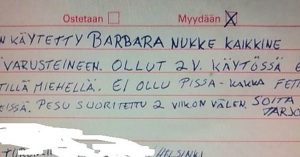 Ostetaan Myydään
N KÄYTETTY BARBARA NUKKE KAIKKINE
VARUSTEINEN. OLLUT 2 V. KÄYTÖSSÄ
TILLÄ MIEHELLÄ. EI OLLU PISSA-KAKKA FETI
ISSÄ. PESU SUORITETTU 2 VIIKON VÄLEN. SOITA
TARJO
HELSINKI